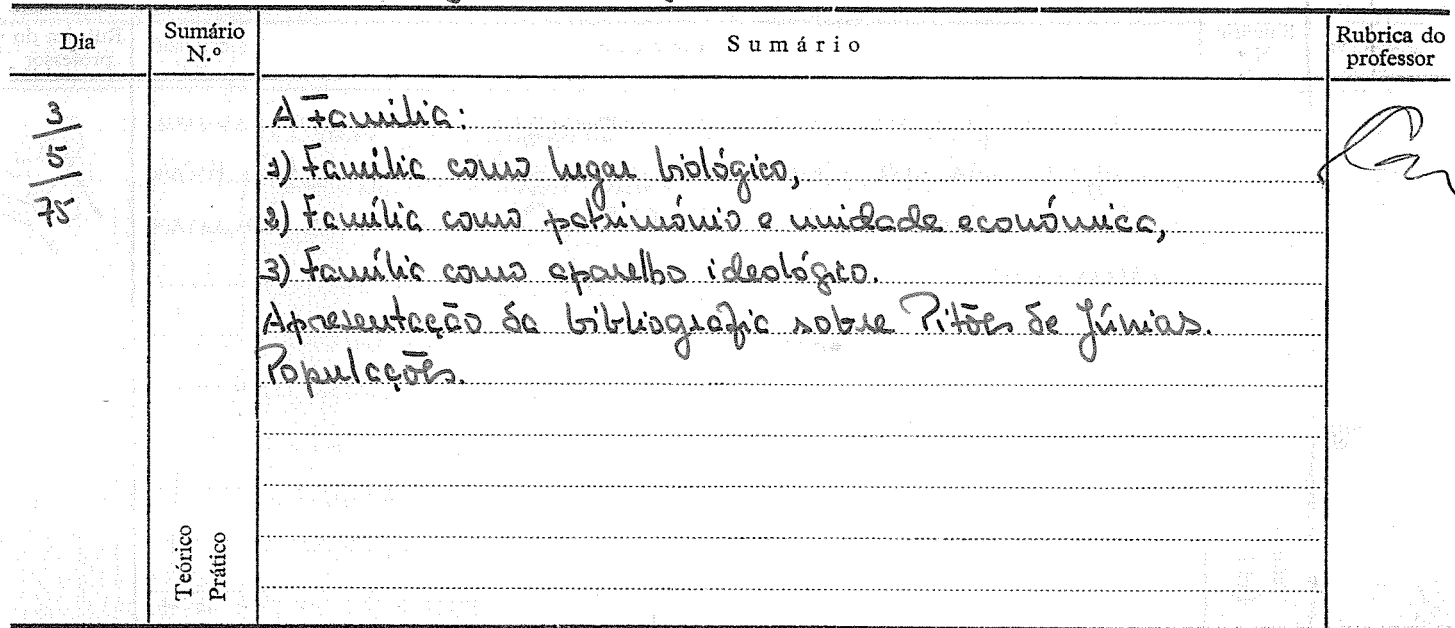 Dia
Sumário
N.º
Sumário
Rubrica do
professor
3
5
75
A Família:
1) Família como lugar biológico,
2) Família como património e unidade económica,
3) Família como aparelho ideológico.
Apresentação da bibliografia sobre Pitões de Júnias.
Populações.
Teórico
Prático